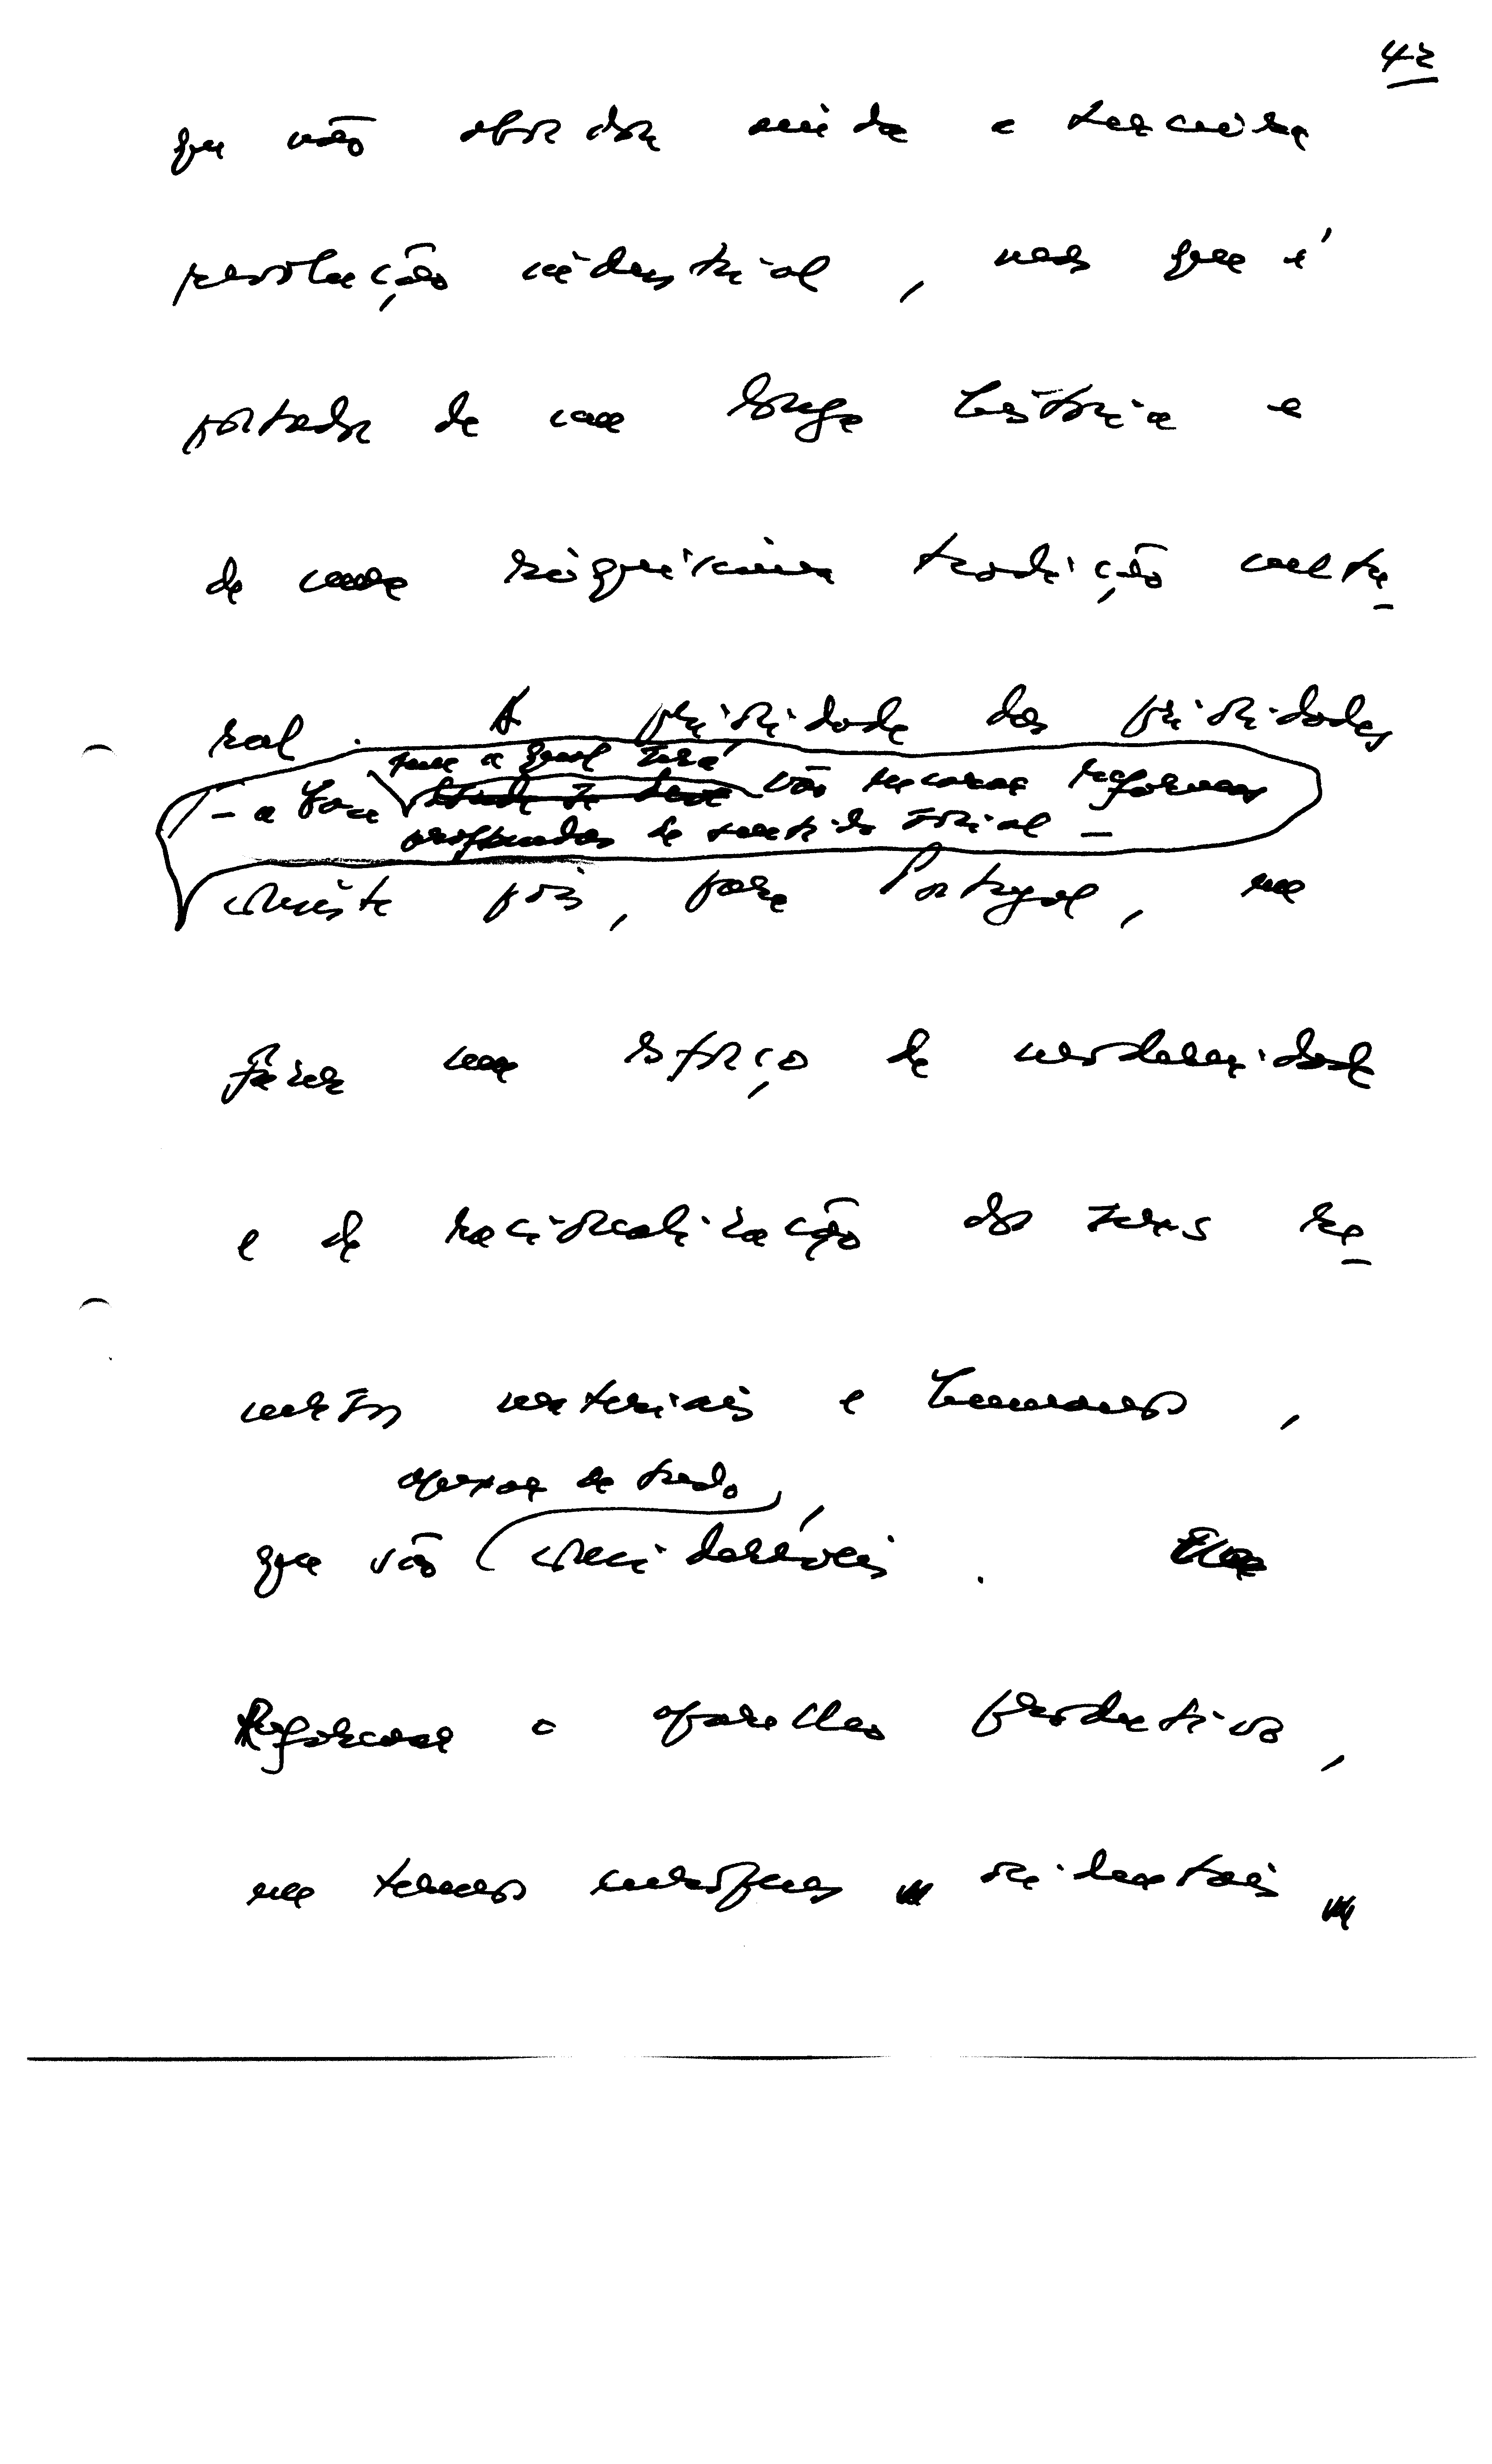 42
que não abordou ainda a terceira
revolução industrial, mas que é
portador de uma longa história e
de uma riquíssima tradição cultu-
ral. A prioridade das prioridades
sem a qual será
- a base vão recursos reformas
profundas de sentido social -
consiste pois, para Portugal, em
fazer um esforço de modernidade
e de racionalização dos seus re-
cursos materiais e humanos,
apesar de tudo,
que são consideráveis.
Reforcar o aparelho produtivo,
em termos europeus ocidentais